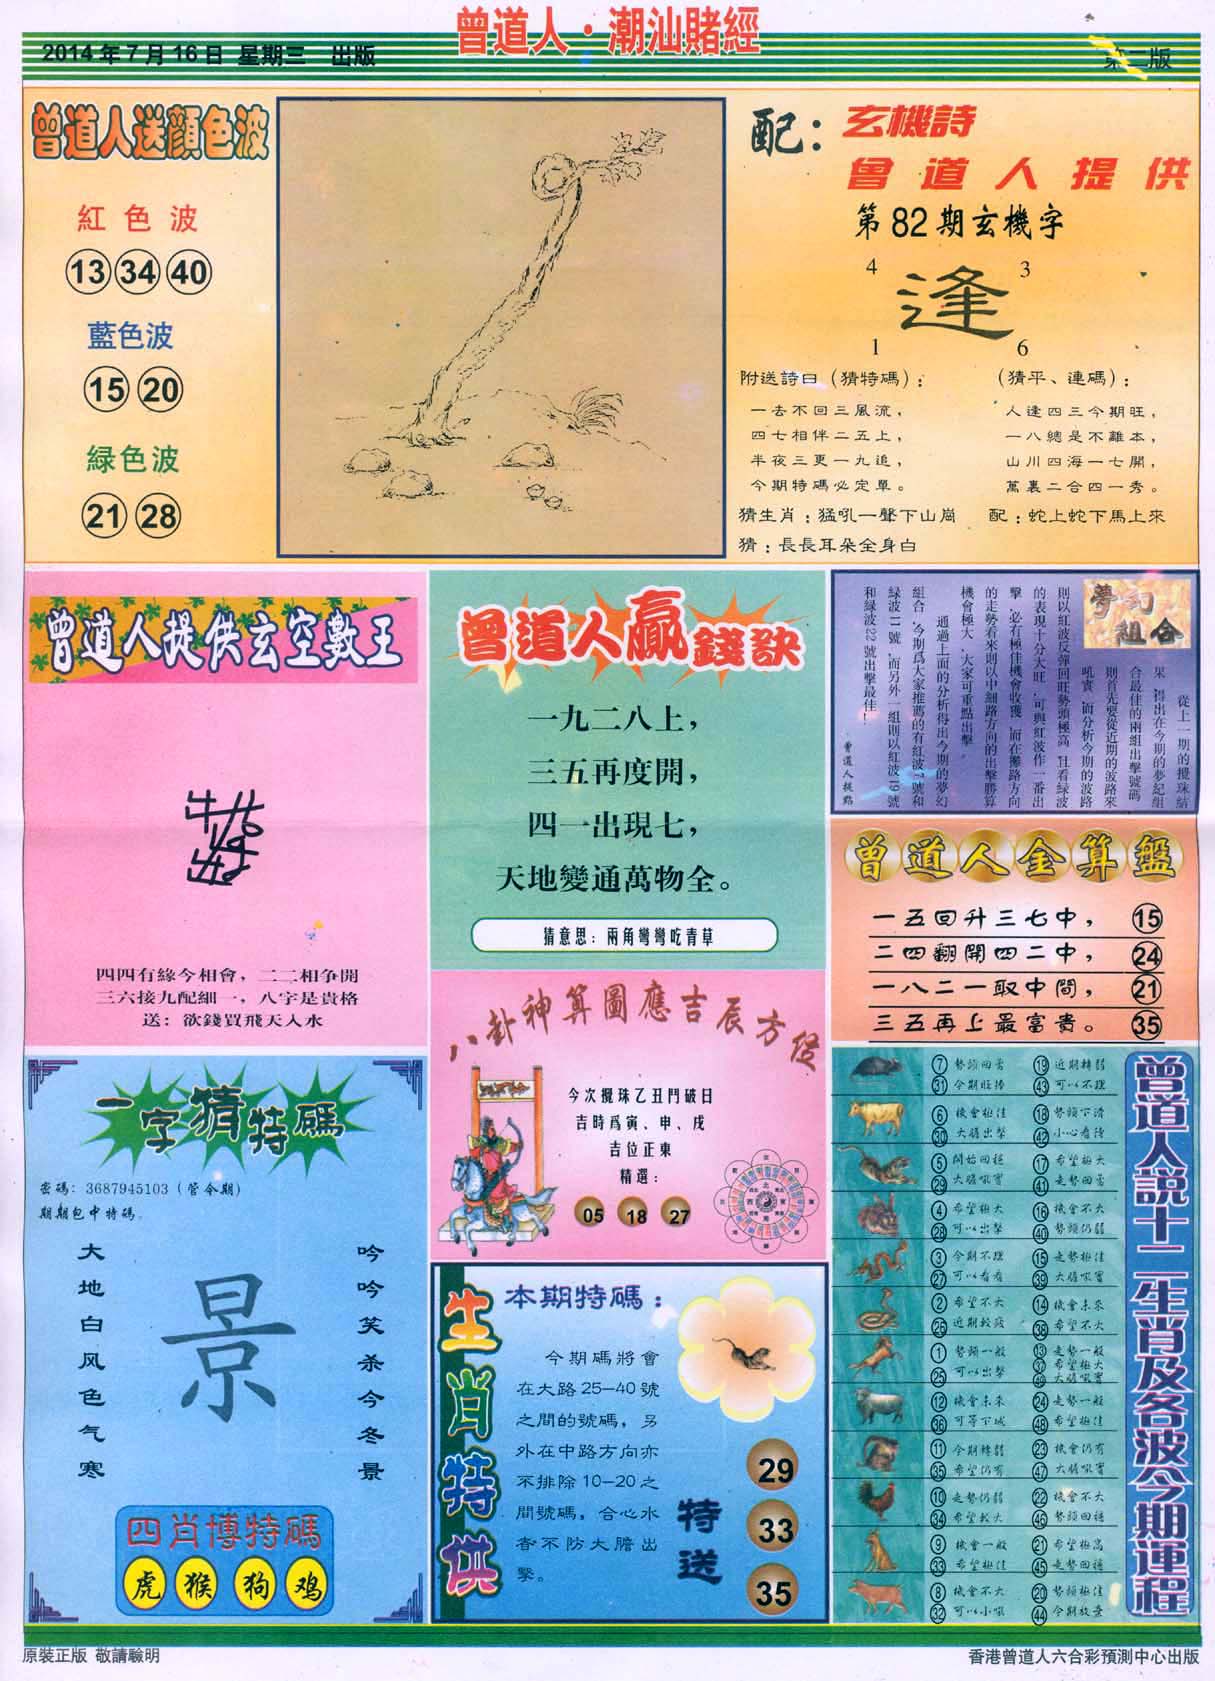 曾道人·潮汕賭經
2014年7月16日 星期三 出版
第二版
曾道人送顏色波
紅色波
13 34 40
藍色波
15 20
綠色波
21 28
配：玄機詩
曾道人提供
第82期玄機字
4 3
逢
1 6
附送詩曰（猜特碼）：
一去不回三風流，
四七相伴二五上，
半夜三更一九追，
今期特碼必定單。
（猜平、連碼）：
人逢四三今期旺，
一八總是不離本，
山川四海一七開，
萬裏二合四一秀。
猜生肖：猛吼一聲下山崗
配：蛇上蛇下馬上來
猜：長長耳朵全身白
曾道人提供玄空數王
四四有緣今相會，二二相争開
三六接九配細一，八字是貴格
送：欲錢買飛天入水
曾道人贏錢訣
一九二八上，
三五再度開，
四一出現七，
天地變通萬物全。
猜意思：兩角彎彎吃青草
夢幻組合
從上一期的攪珠結
果，得出在今期的夢紀組
合最佳的兩組出擊號碼
則首先要從近期的波路來
吼實，而分析今期的波路
則以紅波反彈回旺勢頭極高，且看綠波
的表現十分大旺，可與紅波作一番出
擊，必有極佳機會收獲，而在攤路方向
的走勢看來則以中細路方向的出擊勝算
機會極大，大家可重點出擊。
通過上面的分析得出今期的夢幻
組合，今期爲大家推薦的有紅波7號和
綠波11號，而另外一組則以紅波19號
和綠波22號出擊最佳！
曾道人提點
曾道人金算盤
一五回升三七中， 15
二四翻開四二中， 24
一八二一取中間， 21
三五再上最富貴。 35
一字猜特碼
密碼：3687945103（管令期）
期期包中特碼。
大地白风色气寒
景
吟吟笑杀今冬景
四肖博特碼
虎 猴 狗 鸡
八卦神算圖應吉辰方位
今次攪珠乙丑門破日
吉時爲寅、申、戌
吉位正東
精選：
05 18 27
生肖特供
本期特碼：
今期碼將會
在大路25—40號
之間的號碼，另
外在中路方向亦
不排除10—20之
間號碼，合心水
者不防大膽出
擊。
特送
29
33
35
曾道人說十二生肖及各波今期運程
7 勢頭回落 19 近期轉弱
31 今期旺捧 43 可以不理
6 機會極佳 18 勢頭下滑
30 大膽出擊 42 小心看待
5 開始回穩 17 希望極大
29 大膽吼實 41 走勢回落
4 希望極大 16 機會不大
28 可以出擊 40 勢頭仍弱
3 今期不理 15 走勢極佳
27 可以看看 39 大膽吼實
2 希望不大 14 機會未來
26 近期較疲 38 希望不大
1 勢頭一般 13 走勢一般
25 可以出擊 37 希望極大
49 大膽吼實
12 機會未來 24 走勢一般
36 可等下城 48 希望極佳
11 今期轉弱 23 機會仍有
35 希望仍有 47 大膽吼實
10 走勢仍弱 22 機會不大
34 希望較大 46 勢頭回穩
9 機會一般 21 希望極高
33 希望極佳 45 走勢回穩
8 機會不大 20 勢頭極佳
32 可以小吼 44 今期放棄
原裝正版 敬請驗明
香港曾道人六合彩預測中心出版